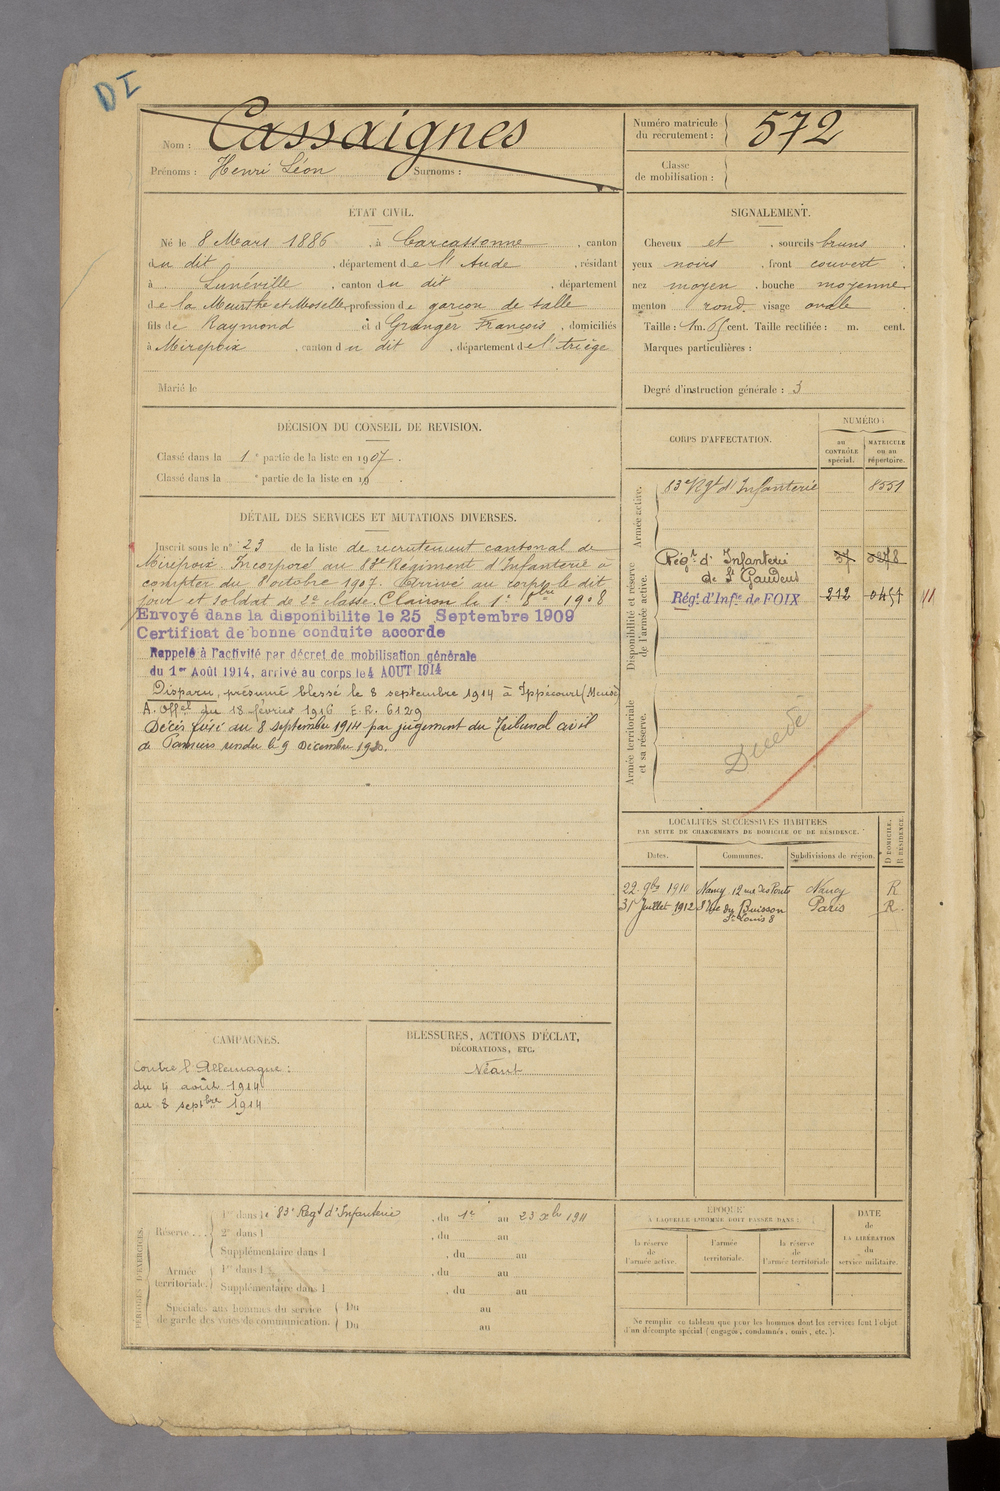 DI
Nom : Cassaignes
Prénoms : Henri Léon Surnoms :
Numéro matricule du recrutement : 572
Classe de mobilisation :
ÉTAT CIVIL.
Né le 8 Mars 1886 , à Carcassonne , canton
du dit , département de l'Aude , résidant
à Lunéville , canton du dit , département
de la Meurthe et Moselle, profession de garçon de salle
fils de Raymond et d Granger François , domiciliés
à Mirepoix , canton du dit , département de l'Ariège
Marié le
SIGNALEMENT.
Cheveux et , sourcils bruns
yeux noirs , front couvert
nez moyen , bouche moyenne
menton rond visage ovale
Taille : 1 m. 65 cent. Taille rectifiée : m. cent.
Marques particulières :
Degré d'instruction générale : 3
DÉCISION DU CONSEIL DE REVISION.
Classé dans la 1e partie de la liste en 1907.
Classé dans la e partie de la liste en 19
DÉTAIL DES SERVICES ET MUTATIONS DIVERSES.
Inscrit sous le n° 23 de la liste de recrutement cantonal de
Mirepoix. Incorporé au 83e Régiment d'Infanterie à
compter du 8 octobre 1907. Arrivé au corps le dit
jour et soldat de 2e classe. Clairon le 1er 8bre 1908
Envoyé dans la disponibilite le 25 Septembre 1909
Certificat de bonne conduite accorde
Rappelé à l'activité par décret de mobilisation générale
du 1er Août 1914, arrivé au corps le 4 AOUT 1914
Disparu, présumé blessé le 8 septembre 1914 à Ippécourt (Meuse)
A. Offel du 18 février 1916 E.R. 6129
Décès fixé au 8 septembre 1914 par jugement du Tribunal civil
de Pamiers rendu le 9 Décembre 1920.
CORPS D'AFFECTATION.
NUMÉRO :
au CONTRÔLE spécial.
MATRICULE ou au répertoire.
Armée active.
83e Rgt d'Infanterie 8551
Disponibilité et réserve de l'armée active.
Régt d'Infanterie 37 0278
de St Gaudens
Régt d'Infie de FOIX 212 0451
Armée territoriale et sa réserve.
Décédé
LOCALITÉS SUCCESSIVES HABITÉES
PAR SUITE DE CHANGEMENTS DE DOMICILE OU DE RÉSIDENCE.
Dates. Communes. Subdivisions de région. D DOMICILE. R RÉSIDENCE.
22 9bre 1910 Nancy 12 rue des Ponts Nancy R
31 Juillet 1912 Rue du Buisson Paris R.
St Louis 8
CAMPAGNES.
Contre l'Allemagne :
du 4 août 1914
au 8 septbre 1914
BLESSURES, ACTIONS D'ÉCLAT,
DÉCORATIONS, ETC.
Néant
PÉRIODES D'EXERCICES.
Réserve....
1re dans le 83e Régt d'Infanterie , du 1er au 23 Xbre 1911
2e dans l , du au
Supplémentaire dans l , du au
Armée territoriale.
1re dans l , du au
Supplémentaire dans l , du au
Spéciales aux hommes du service de garde des voies de communication.
Du au
Du au
ÉPOQUE
À LAQUELLE L'HOMME DOIT PASSER DANS :
la réserve de l'armée active.
l'armée territoriale.
la réserve de l'armée territoriale
DATE de LA LIBÉRATION du service militaire.
Ne remplir ce tableau que pour les hommes dont les services font l'objet
d'un décompte spécial (engagés, condamnés, omis, etc.).